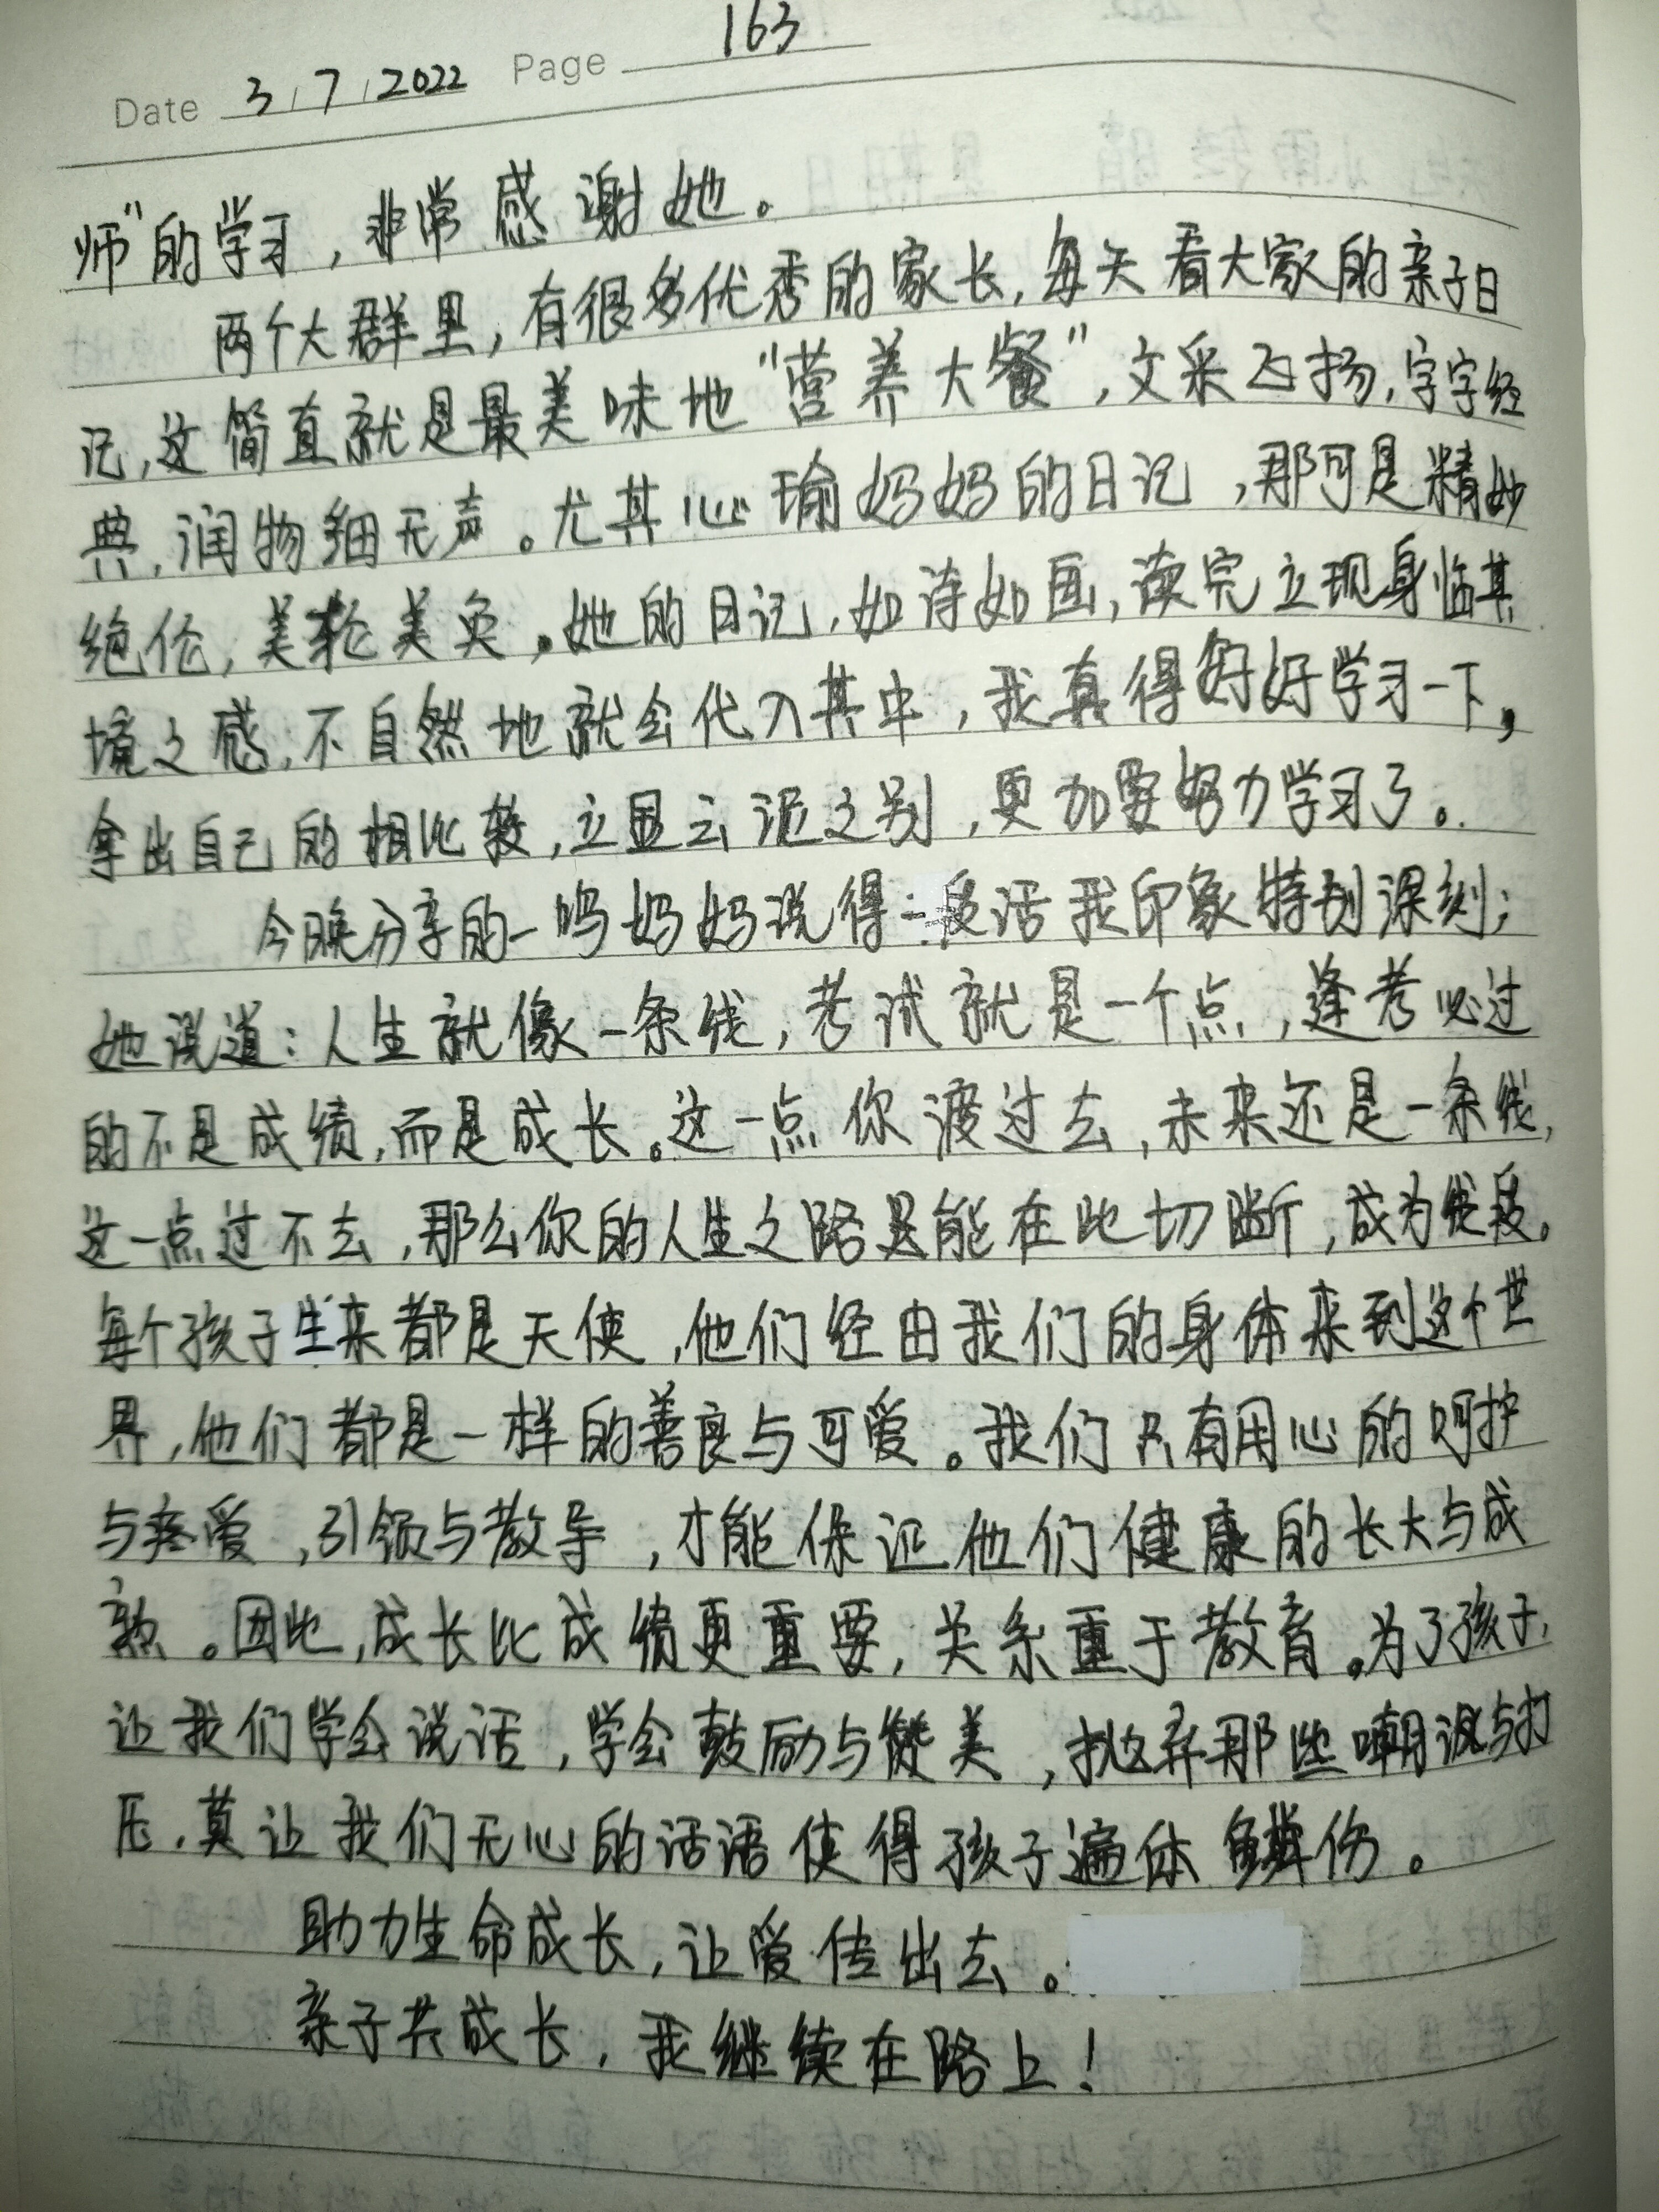 Date 3/7/2022 Page 163
师"的学习，非常感谢她。
两个大群里，有很多优秀的家长，每天看大家的亲子日
记，这简直就是最美味地"营养大餐"，文采飞扬，字字经
典，润物细无声。尤其心瑜妈妈的日记，那可是精妙
绝伦，美轮美奂。她的日记，如诗如画，读完立现身临其
境之感，不自然地就会代入其中，我真得好好学习一下，
拿出自己的相比较，立显云泥之别，更加要努力学习了。
今晚分享的一鸣妈妈说得一段话我印象特别深刻；
她说道：人生就像一条线，考试就是一个点，逢考必过
的不是成绩，而是成长。这一点你渡过去，未来还是一条线，
这一点过不去，那么你的人生之路是能在此切断，成为线段。
每个孩子生来都是天使，他们经由我们的身体来到这个世
界，他们都是一样的善良与可爱。我们只有用心的呵护
与疼爱，引领与教导，才能保证他们健康的长大与成
熟。因此，成长比成绩更重要，关系重于教育。为了孩子，
让我们学会说话，学会鼓励与赞美，抛弃那些嘲讽与打
压，莫让我们无心的话语使得孩子遍体鳞伤。
助力生命成长，让爱传出去。
亲子共成长，我继续在路上！